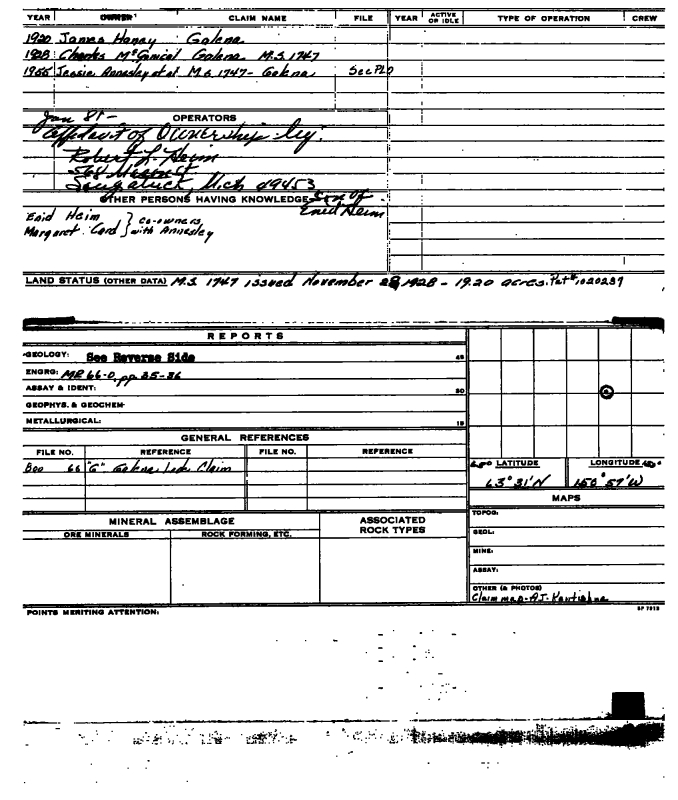 YEAR OWNER CLAIM NAME FILE YEAR ACTIVE OR IDLE TYPE OF OPERATION CREW
1920 James Haney Galena
1928 Charles McGonical Galena M.S. 1747
1955 Jessie Annesley et al M.S. 1747 - Galena See PLO
Jan 81 -
OPERATORS
Affidavit of Ownership by:
Robert L. Heim
568 Mason St
Saugatuck, Mich 49453
OTHER PERSONS HAVING KNOWLEDGE Son of Enid Heim
Enid Heim } co-owners
Margaret Card } with Annesley
LAND STATUS (OTHER DATA) M.S. 1747 issued November 28, 1928 - 19.20 acres. Pat# 1020239
REPORTS
GEOLOGY: See Reverse Side 45
ENGRG: MR 66-0, pp 35-36
ASSAY & IDENT: 30
GEOPHYS. & GEOCHEM-
METALLURGICAL: 15
GENERAL REFERENCES
FILE NO. REFERENCE FILE NO. REFERENCE
Boo 66 "G" Galena Lode Claim
LATITUDE LONGITUDE
63° 31'N 150° 57'W
MAPS
MINERAL ASSEMBLAGE ASSOCIATED ROCK TYPES
ORE MINERALS ROCK FORMING, ETC.
TOPOG:
GEOL:
MINE:
ASSAY:
OTHER (& PHOTOS)
Claim map - A.J. Kantishna
POINTS MERITING ATTENTION: SP 7813